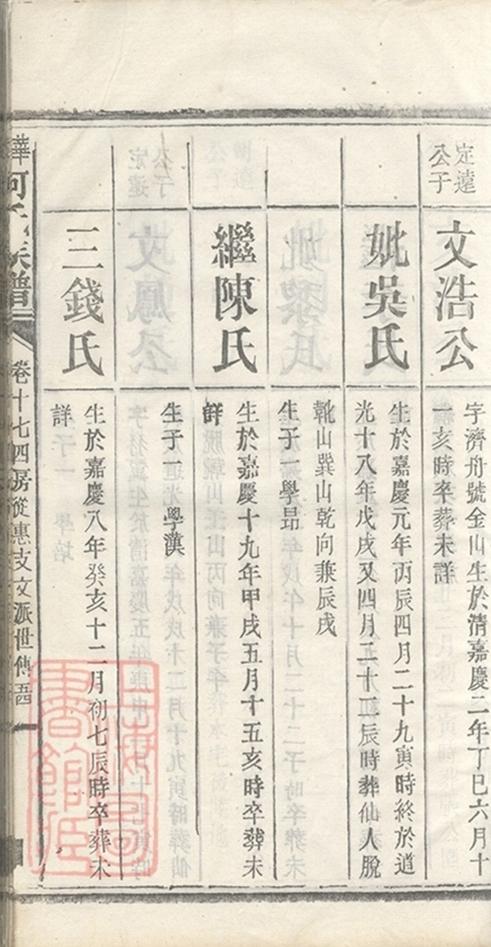 定遠
公子
文浩公
字濟舟號金山生於清嘉慶二年丁巳六月十
一亥時卒葬未詳
妣吳氏
生於嘉慶元年丙辰四月二十九寅時終於道
光十八年戊戌又四月二十二辰時葬仙人脫
靴山巽山乾向兼辰戌
生子一學昻
繼陳氏
生於嘉慶十九年甲戌五月十五亥時卒葬未
詳
生子一學漢
三錢氏
生於嘉慶八年癸亥十二月初七辰時卒葬未
詳
族譜
卷十七四房從惠支文派世傳